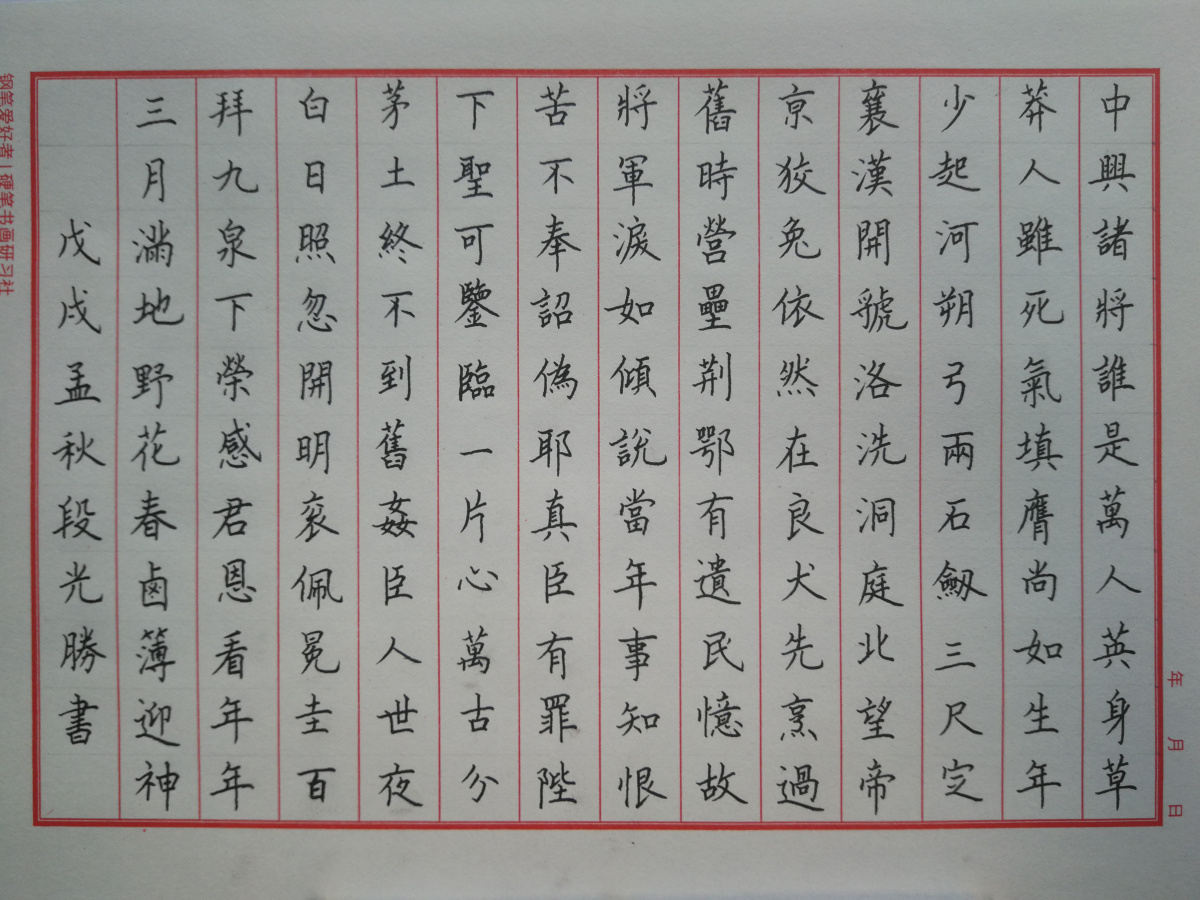 中興諸將誰是萬人英身草
莽人雖死氣填膺尚如生年
少起河朔弓兩石劒三尺定
襄漢開虢洛洗洞庭北望帝
京狡兔依然在良犬先烹過
舊時營壘荆鄂有遺民憶故
將軍淚如傾說當年事知恨
苦不奉詔偽耶真臣有罪陛
下聖可鑒臨一片心萬古分
茅土終不到舊姦臣人世夜
白日照忽開明衮佩冕圭百
拜九泉下榮感君恩看年年
三月滿地野花春鹵簿迎神
戊戌孟秋段光勝書
年 月 日
钢笔爱好者|硬笔书画研习社